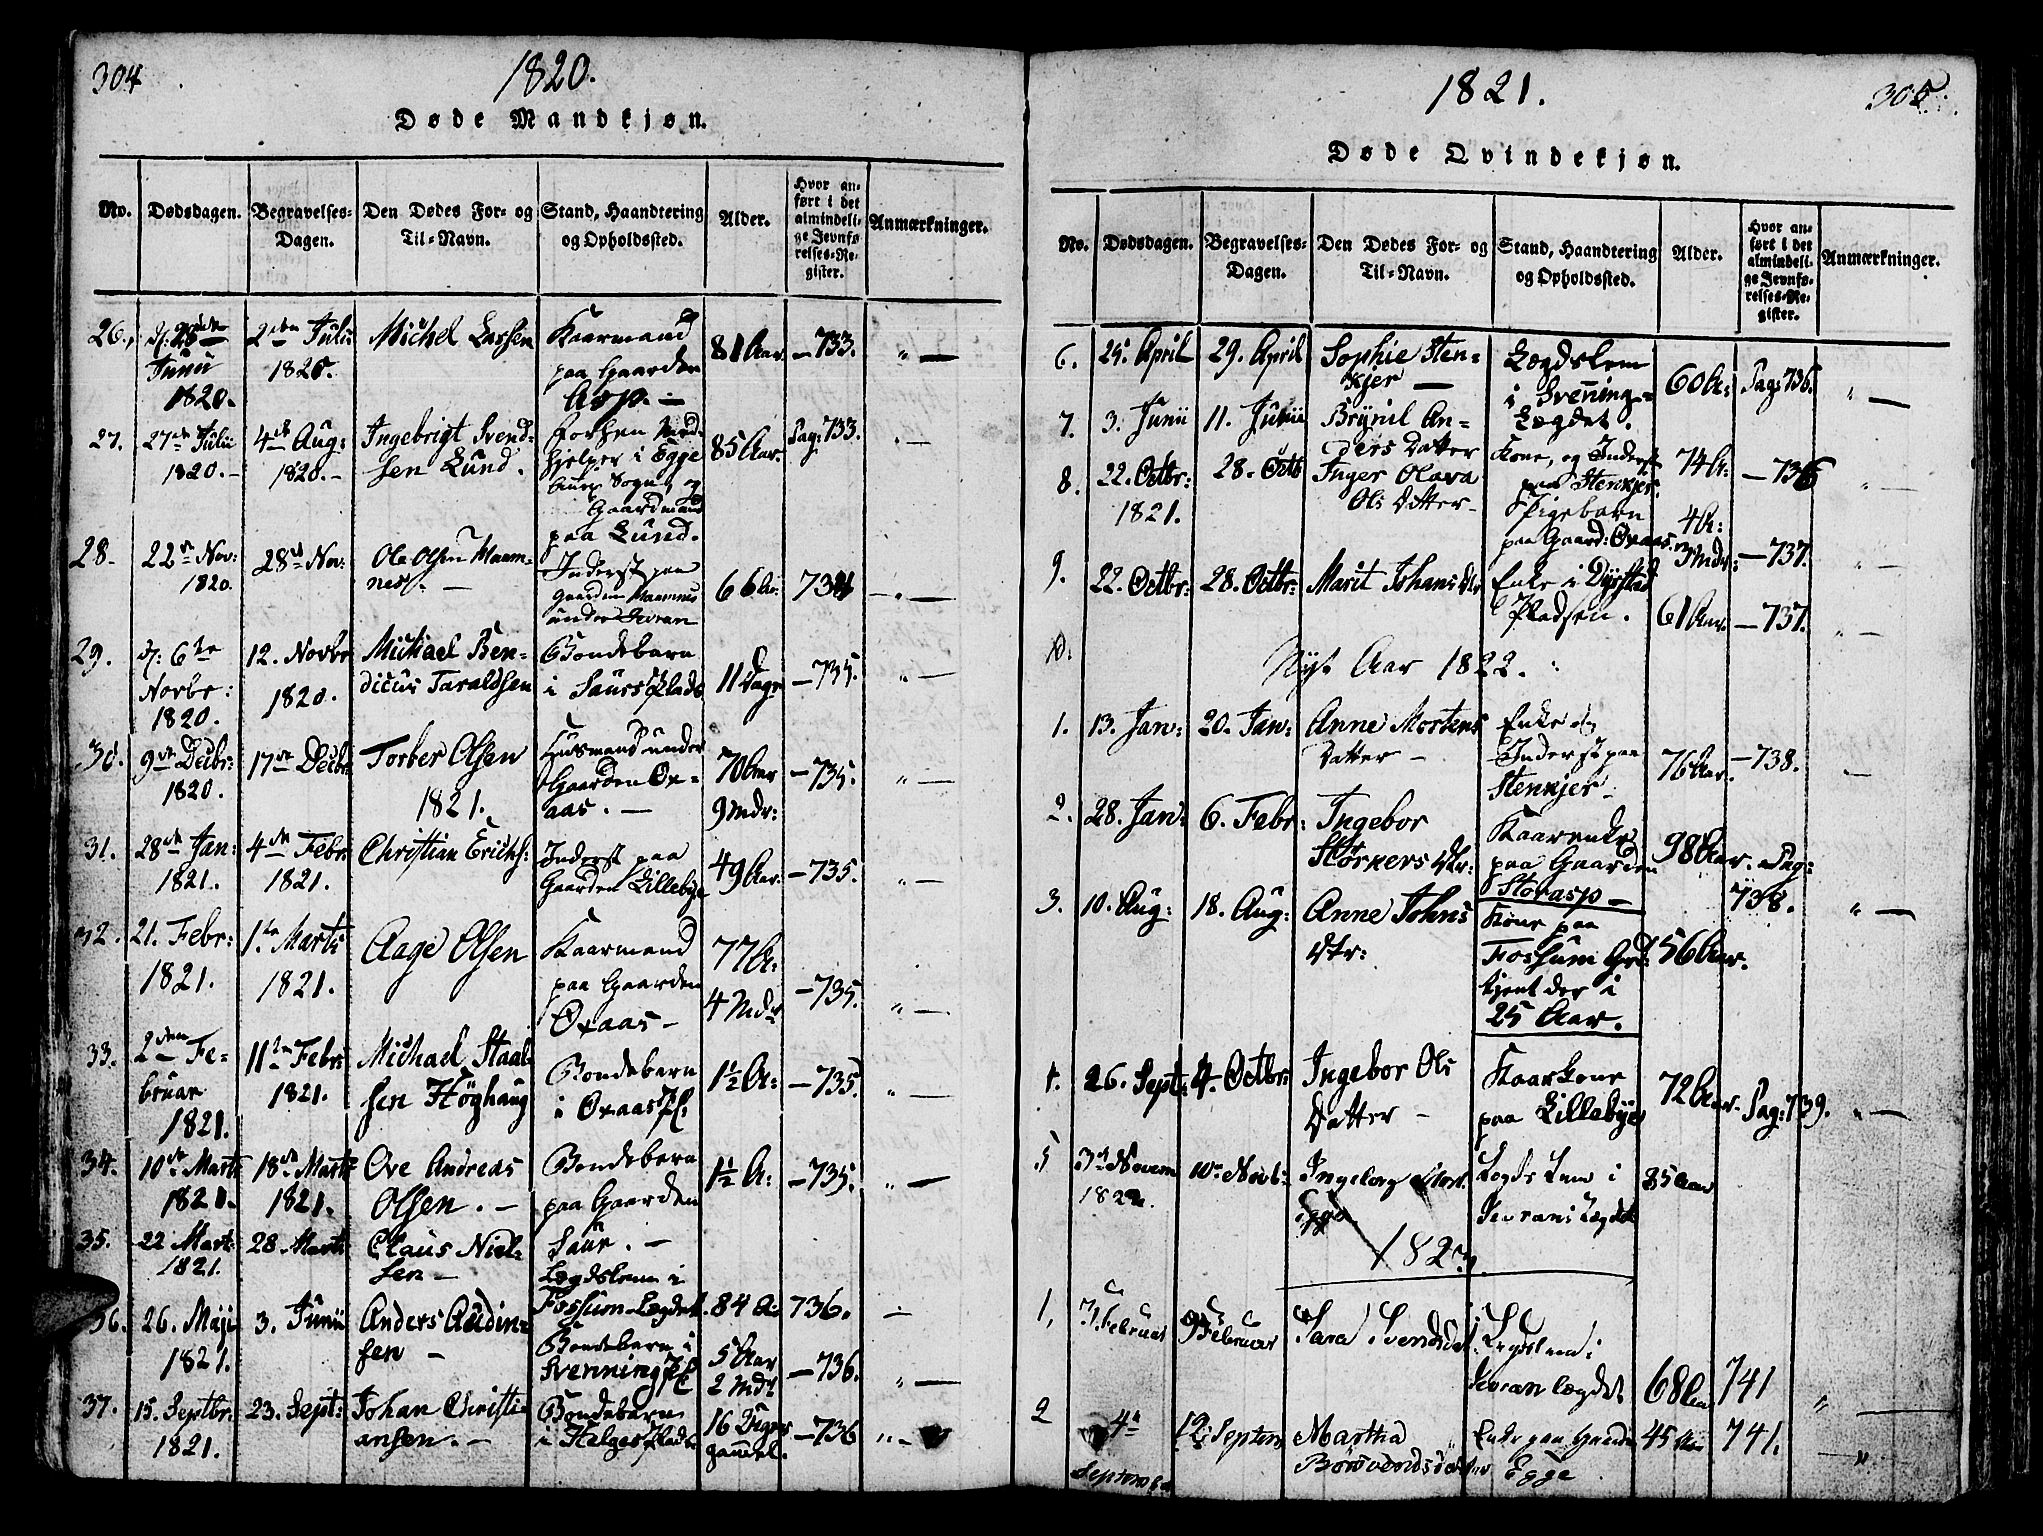 304
1820.
Døde Mandkjøn.
No. Dødsdagen. Begravelses-Dagen. Den Dødes For- og Til-Navn. Stand, Haandtering og Opholdssted. Alder. Hvor anført i det almindelige Jevnførelses-Register. Anmærkninger.
26. Junii 1820. 2den Julii 1820. Michel Lassen Kaarmand paa Gaarden Asp. — 81 Aar. — 733. " —
27. 27de Julii 1820. — 4de Aug: 1820. — Ingebrigt Svendsen Lund. hjelper i Egge Sogn, og Gaardmand paa Lund. 85 Aar. Pag: 733. " —
28. 22de Nov: 1820. 28de Nov: Ole Olsen — Inderst paa Gaarden under 66 Aar. 734 — " —
29. d: 6te Novbr: 1820. 12. Novbr 1820. Michael Bendicus Taraldsen Bondebarn i Saurs Plads 11 Dage — 735. " —
30. 9de Decbr: 1820. 17de Decbr Torber Olsen Husmand under Gaarden Oxaas. — 70 Aar 9 Mdr: — 735. " —
1821.
31. 28de Jan: 1821. 4de Febr: 1821. Christian Erichs: Inderst paa Gaarden Lillebye 49 Aar. — 735. " —
32. 21. Febr: 1821. 1te Marts 1821. Aage Olsen Kaarmand paa Gaarden Oxaas — 77 A: 4 Mdr — 735. " —
33. 2den Februar 1821. 11te Febr: 1821. Michael Staalsen Höghaug Bondebarn i Oxaas Pl: 1½ A: — 735. " —
34. 10de Marts 1821. 18de Marts 1821. Ove Andreas Olsen. — Bondebarn paa Gaarden Saur. — 1½ A: — 735. " —
35. 22 Mart: 1821. 28. Marts Claus Nielsen — Lægdslem i Fossum-Lægdet. 84 A: 736. —
36. 26. Maji 1821. 3. Junii Anders Audinsen — Bondebarn i Svenning Pl 5 Aar 2 Mdr — 736. " —
37. 15. Septbr: 1821. 23. Sept: Johan Christiansen. — Bondebarn i Helges Plads 16 Uger gammel. — 736 " —
1821.
305.
Døde Qvindekjøn.
No. Dødsdagen. Begravelses-Dagen. Den Dødes For- og Til-Navn. Stand, Haandtering og Opholdssted. Alder. Hvor anført i det almindelige Jevnførelses-Register. Anmærkninger.
6. 25. April 29. April Sophie Stenkjer — Lægdslem i Svennings-Lægdet. 60 A: Pag: 736. " —
7. 3. Junii 11. Junii Brynil Anders Datter Kone, og Inderst paa Stenkjer. 74 A: — 736 " —
8. 22. Octbr: 1821. 28. Octb Inger Olava Ols Datter — Pigebarn paa Gaard: Oxaas. 4 A: 3 Mdr: — 737. "
9. 22. Octbr: 28. Octbr: Marit Johans Dtr Enke i Dyrstad Pladsen. 61 Aar. — 737. " —
10. Nyt Aar 1822.
1. 13. Jan: 20. Jan: Anne Mortens Datter — Enke og Inderst paa Stenkjer — 76 Aar. — 738. " —
2. 28. Jan: 6. Febr: Ingebor Störkers Dtr: Kaarenke paa Gaarden Storasp — 98 Aar. Pag: 738. " —
3. 10. Aug: 18. Aug: Anne Johns Dtr: Kone paa Fossum Grd: tjent der i 25 Aar. 56 Aar.
4. 26. Sept: 4. Octbr: Ingebor Ols Datter — Kaarkone paa Lillebye 72 Aar. Pag: 739. " —
5 3de Novem 1822. 10de Novb: Ingeborg Mort. Egge Legdslem i Sevrans Lægdet 85 Aar
1823.
1, 3. Februar 9 Februar Sara Svendsdat. Legdslem i Sevran lægdet 68 Aar 741 " —
2 4de Septembr 12 Septem Martha Enke paa Gaarden Egge 45 Aar 741. — "